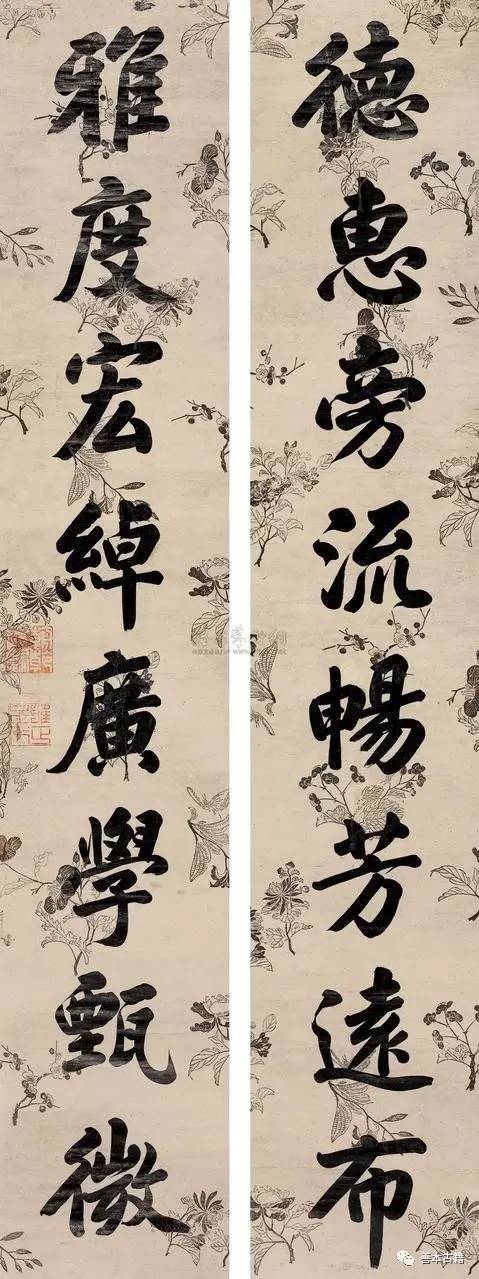 德惠旁流暢芳遠布
雅度宏綽廣學甄微
善本古籍